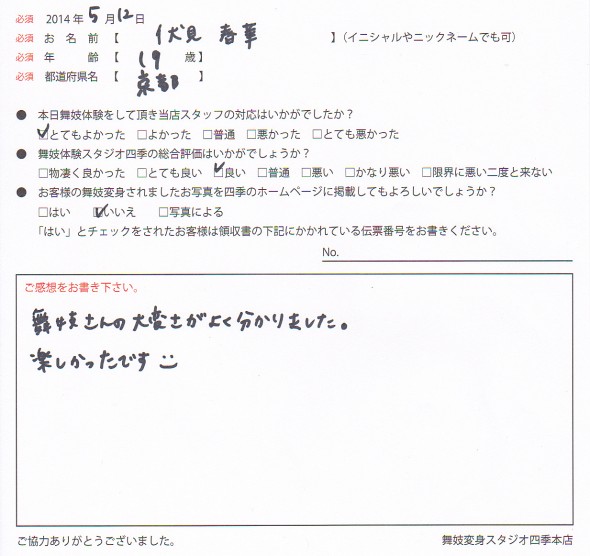 必須 2014年5月12日
必須 お名前【 伏見 春華 】(イニシャルやニックネームでも可)
必須 年齢【 19 歳】
必須 都道府県名【 京都 】
● 本日舞妓体験をして頂き当店スタッフの対応はいかがでしたか?
☑とてもよかった □よかった □普通 □悪かった □とても悪かった
● 舞妓体験スタジオ四季の総合評価はいかがでしょうか?
□物凄く良かった □とても良い ☑良い □普通 □悪い □かなり悪い □限界に悪い二度と来ない
● お客様の舞妓変身されましたお写真を四季のホームページに掲載してもよろしいでしょうか?
□はい ☑いいえ □写真による
「はい」とチェックをされたお客様は領収書の下記にかかれている伝票番号をお書きください。
No.
ご感想をお書き下さい。
舞妓さんの大変さがよく分かりました。
楽しかったです
ご協力ありがとうございました。 舞妓変身スタジオ四季本店